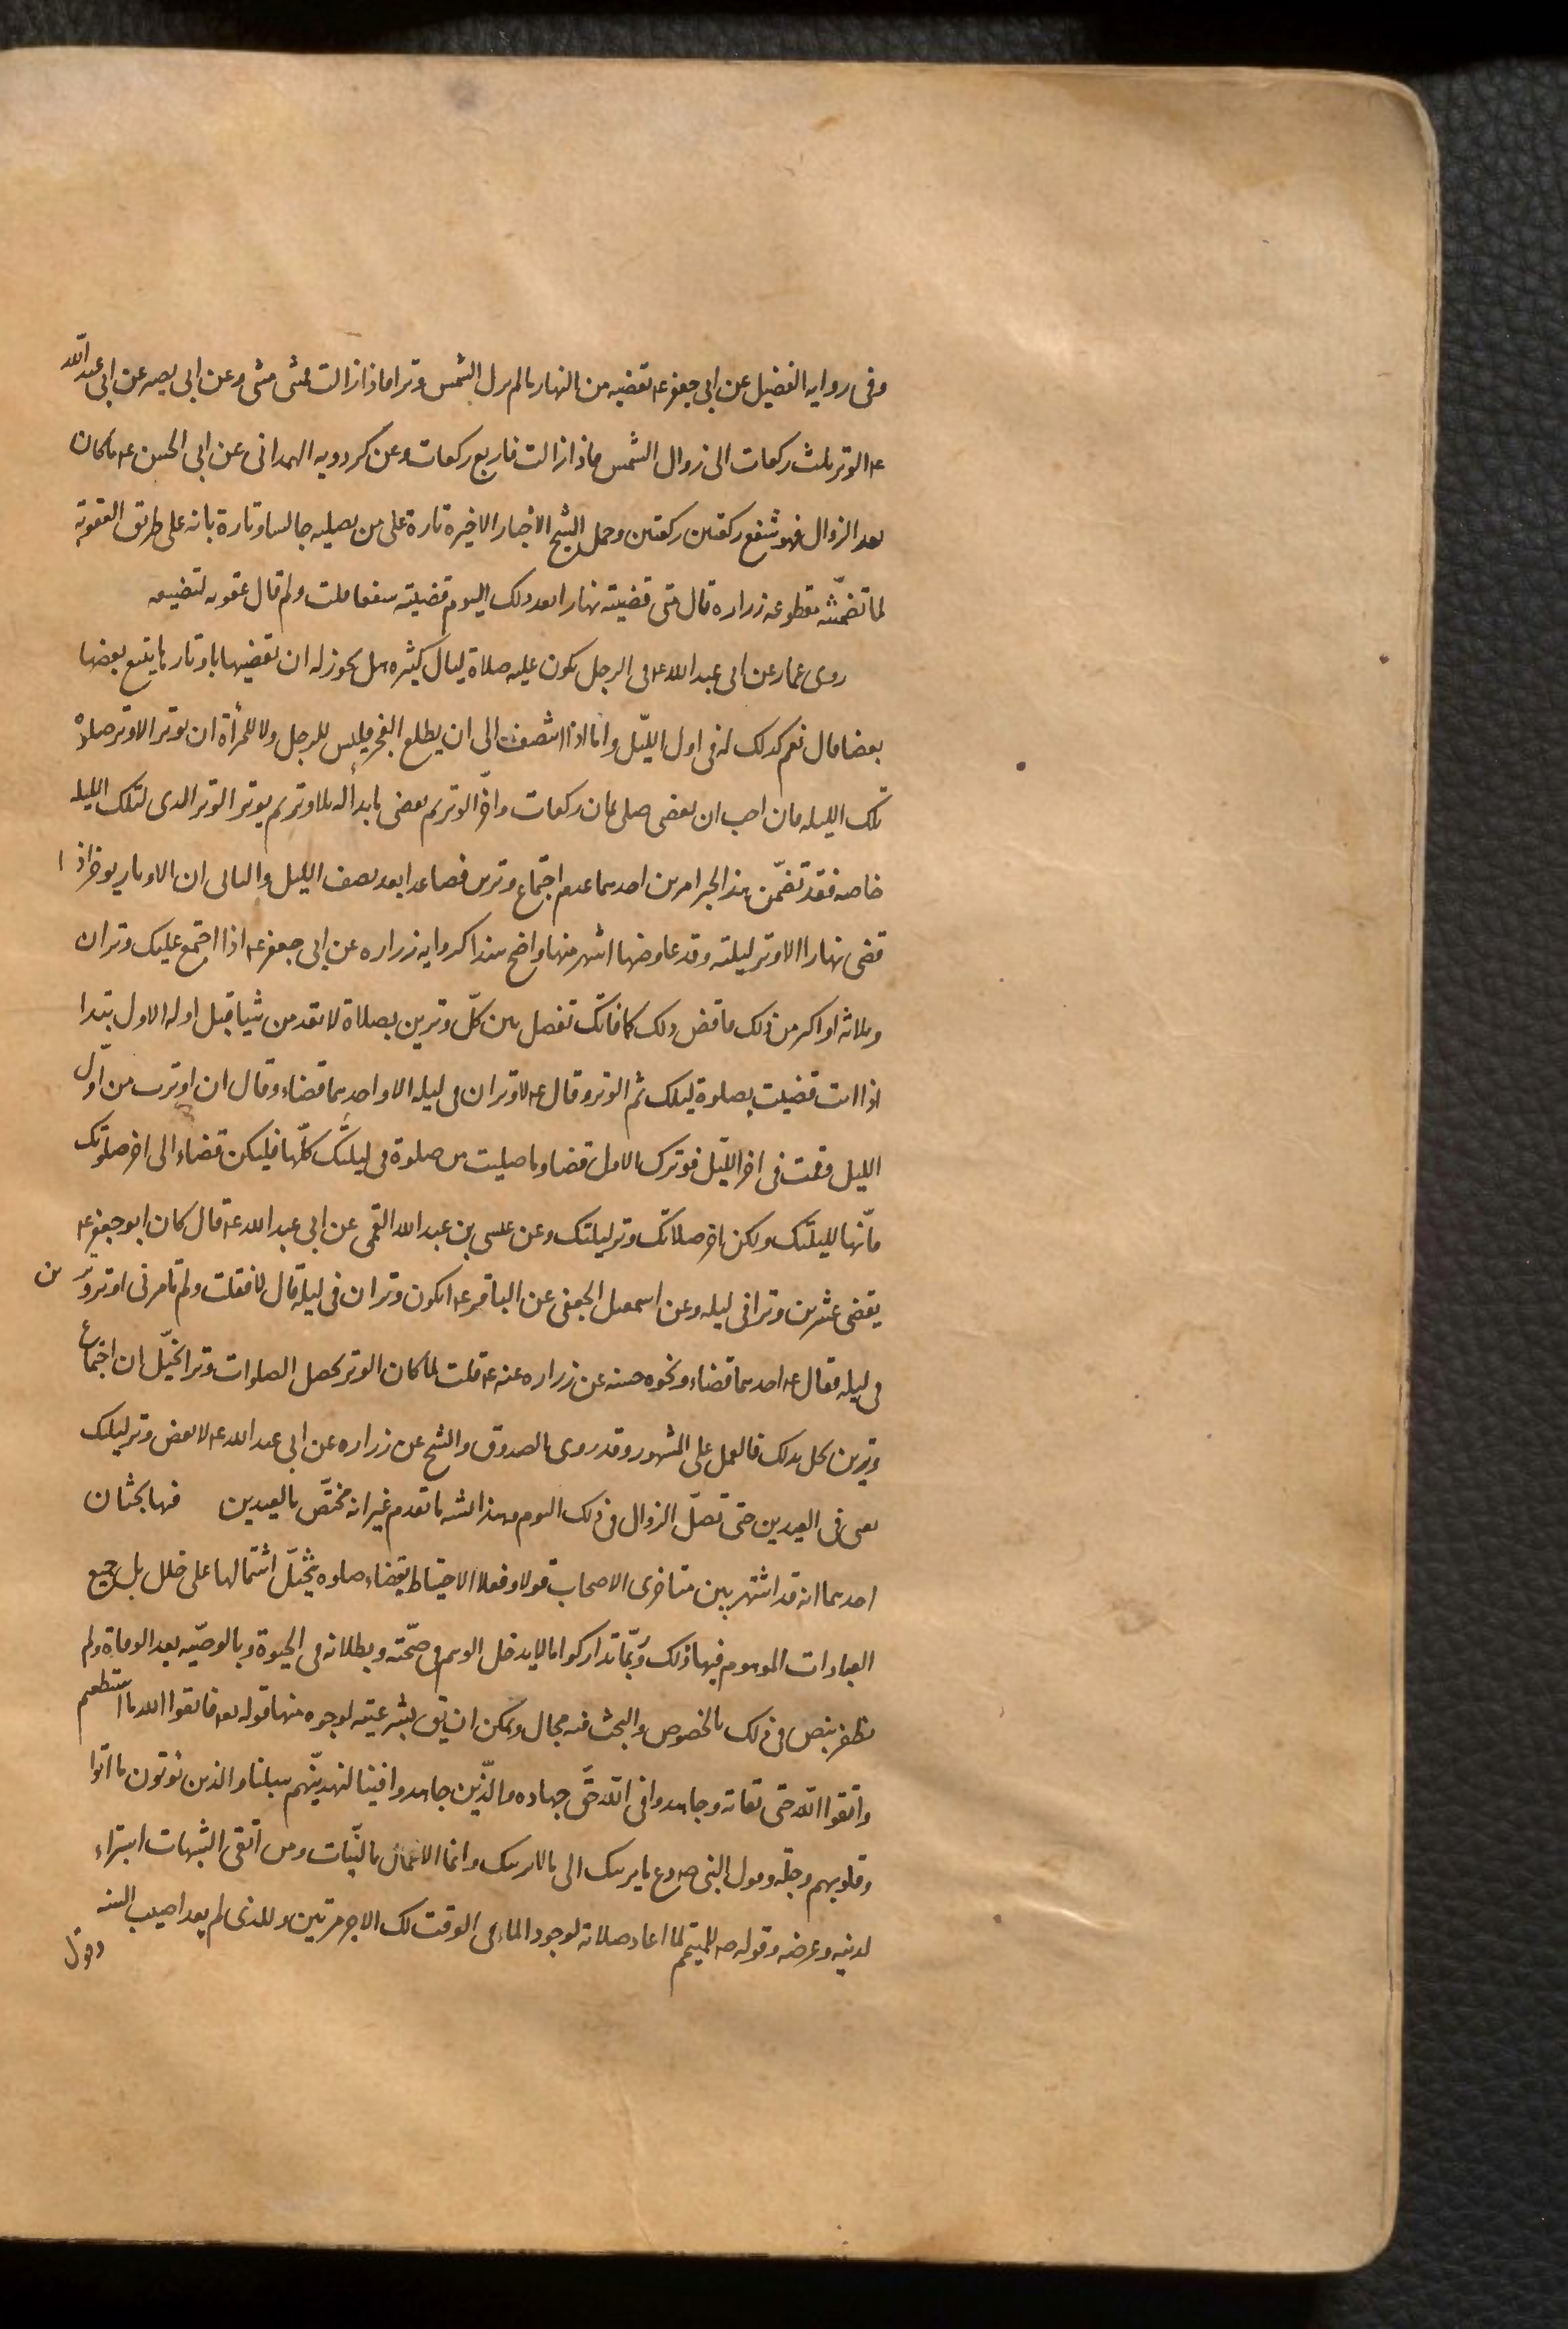 وفى روايه الفضيل عن ابى جعفر عه تقضيه من النهار مالم يزل الشمس وترا فاذا زالت فمثنى مثنى وعن ابى بصير عن ابى عبدالله
عه الوتر ثلث ركعات الى زوال الشمس فاذا زالت فاربع ركعات وعن كردويه الهمدانى عن ابى الحسن عه ما كان
بعد الزوال فهو شفع ركعتين ركعتين وحمل الشيخ الاخبار الاخيرة تارة على من يصليه جالسا وتارة بانه على طريق العقوبة
لما تضمنته مقطوعه زراره قال متى قضيته نهارا بعد ذلك اليوم قضيته شفعا قلت ولم قال عقوبه لتضييعه
روى عمار عن ابى عبد الله عه فى الرجل يكون عليه صلاة ليال كثيره هل يجوز له ان يقضيها باوتارها يتبع بعضها
بعضا قال نعم كذلك له فى اول الليل واما اذا انتصف الى ان يطلع الفجر فليس للرجل ولا للمرأة ان يوتر الا وتر صلوة
تلك الليله فان احب ان يقضى صلى ثمان ركعات واخر الوتر ثم يقضى ما بدأ له بلا وتر ثم يوتر الوتر الذى لتلك الليله
خاصه فقد تضمن هذا الخبر امرين احدهما عدم اجتماع وترين فصاعدا بعد نصف الليل والثانى ان الاوتار يوخر اذا
قضى نهارا الا وتر ليلته وقد عارضها اشهر منها واضح سندا كروايه زراره عن ابى جعفر عه اذا اجتمع عليك وتران
وثلاثه او اكثر من ذلك فاقض ذلك كما فاتك تفصل بين كل وترين بصلاة لا تقدمن شيا قبل اوله الاول تبدا
اذا انت قضيت بصلوة ليلتك ثم الوتر وقال عه لا وتران فى ليله الا واحدهما قضاء وقال ان اوترت من اول
الليل وقمت فى اخر الليل فوترك الاول قضاء وما صليت من صلوة فى ليلتك كلها فليكن قضاء الى اخر صلوتك
فانها لليلتك وليكن اخر صلاتك وتر ليلتك وعن عيسى بن عبد الله القمى عن ابى عبد الله عه قال كان ابو جعفر عه
يقضى عشرين وترا فى ليله وعن اسمعيل الجعفى عن الباقر عه ايكون وتران فى ليلة قال لا فقلت ولم تامرنى اوتر وترين
فى ليله فقال عه احدهما قضاء ونحوه حسنه عن زراره عنه عه قلت لما كان الوتر يحصل الصلوات وترا تخيل ان اجتماع
وترين يخل بذلك فالعمل على المشهور وقد روى الصدوق والشيخ عن زراره عن ابى عبد الله عه لا تقض وتر ليلتك
يعنى فى العيدين حتى تصلى الزوال فى ذلك اليوم وهذا اشبه ما تقدم غير انه مختص بالعيدين فهنا بحثان
احدهما انه قد اشتهر بين متاخرى الاصحاب قولا وفعلا الاحتياط بقضاء صلوه يتخيل اشتمالها على خلل بل جميع
العبادات الموهوم فيها ذلك وربما تداركوا ما لا يدخل الوهم فى صحته وبطلانه فى الحيوة وبالوصيه بعد الوفاة ولم
نظفر بنص فى ذلك بالخصوص وللبحث فيه مجال ويمكن ان يق بشرعيته لوجوه منها قوله تعه فاتقوا الله ما استطعتم
واتقوا الله حق تقاته وجاهدوا فى الله حق جهاده والذين جاهدوا فينا لنهدينهم سبلنا والذين يؤتون ما اتوا
وقلوبهم وجلة وقول النبى صه دع ما يريبك الى ما لا يريبك وانما الاعمال بالنيات ومن اتقى الشبهات استبراء
لدينه وعرضه وقوله صه للمتيمم لما اعاد صلاته لوجود الماء فى الوقت لك الاجر مرتين وللذى لم يعد اصبت السنه
وقول